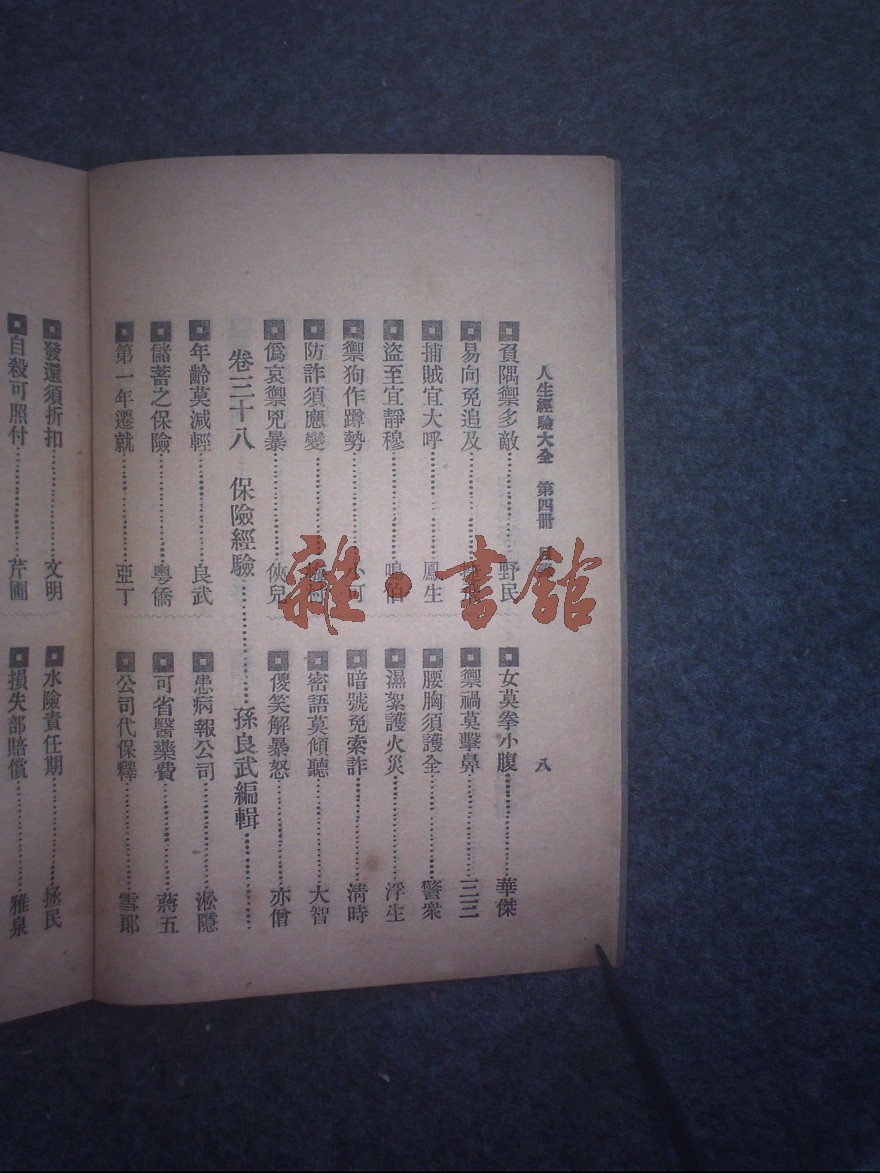 人生經驗大全 第四冊 目 八
負隅禦多敵 野民
女莫拳小腹 華傑
易向免追及
禦禍莫擊鼻 一三三
捕賊宜大呼 鳳生
腰胸須護全 警衆
盜至宜靜穆 鳴伯
濕絮護火災 浮生
禦狗作蹲勢 小可
暗號免索詐 清時
防詐須應變
密語莫傾聽 大智
僞哀禦兇暴 俠兒
傻笑解暴怒 亦僧
卷三十八 保險經驗 孫良武編輯
年齡莫減輕 良武
患病報公司 淞隱
儲蓄之保險 粵僑
可省醫藥費 蔣五
第一年遷就 亞丁
公司代保釋 雪郎
發還須折扣 文明
水險責任期 拯民
自殺可照付 芹圃
損失部賠償 雅泉
雜·書館